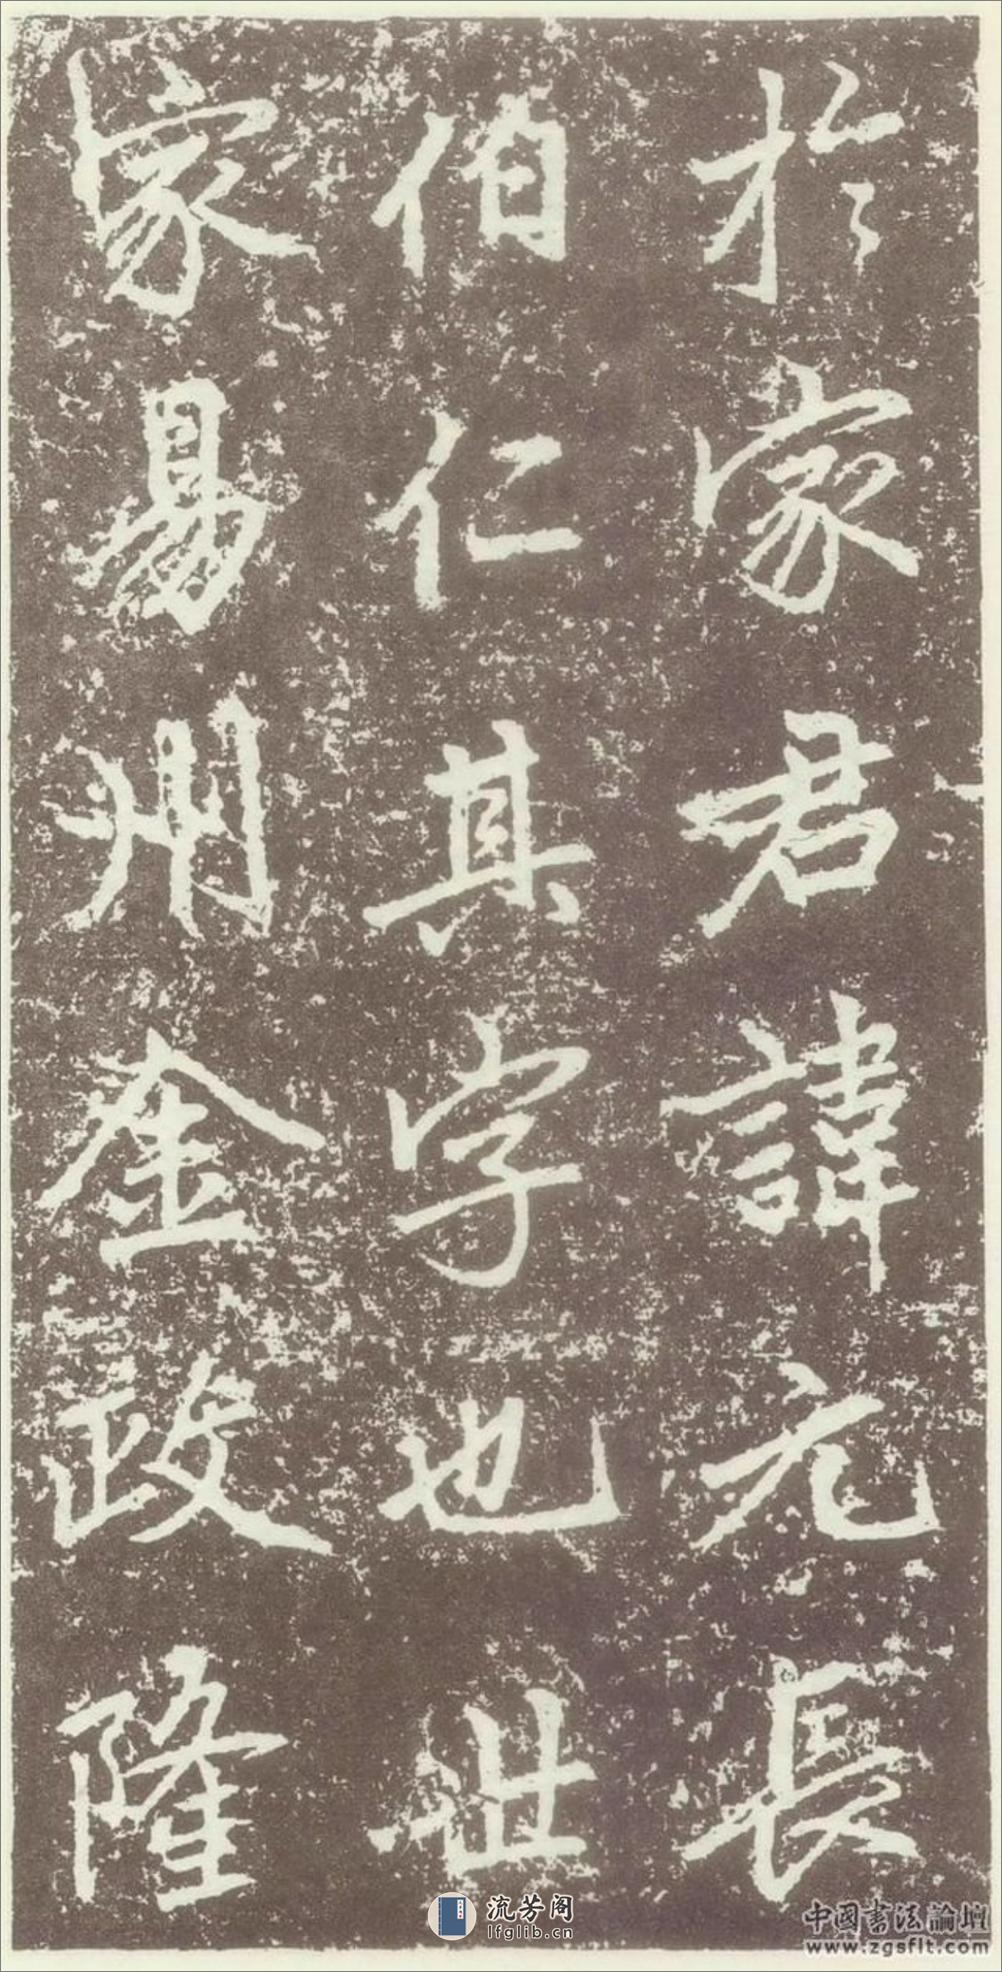 於家君諱元長
伯仁其字也世
家易州金政隆
流芳阁
lfglib.cn
中國書法論壇
www.zgsflt.com